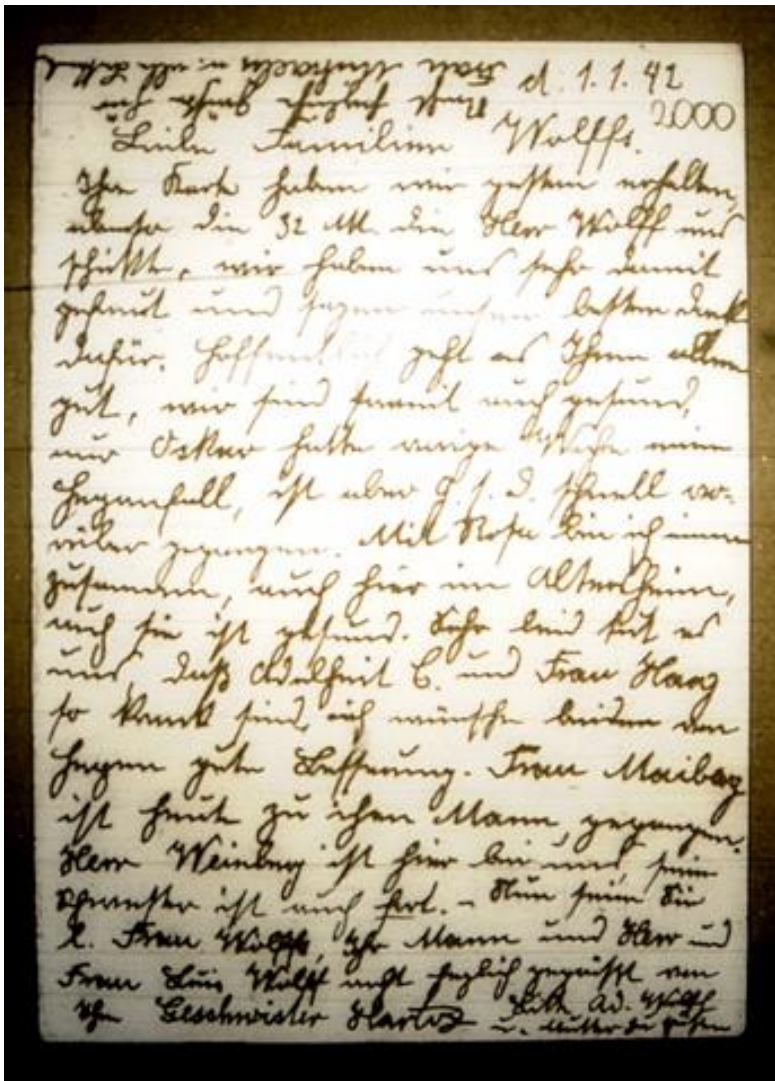 d. 1.1.42
2000
Liebe Familien Wolffs.
Ihre Karte haben wir gestern erhalten,
ebenso die 32 M. die Herr Wolff uns
schickte, wir haben uns sehr damit
gefreut und sagen unsern besten Dank
dafür. Hoffentlich geht es Ihnen allen
gut, wir sind soweit auch gesund,
nur Oskar hatte vorige Woche einen
Hexenschuß, ist aber G. s. d. schnell vor-
über gegangen. Mit Rosa bin ich immer
zusammen, auch hier im Altersheim,
auch sie ist gesund. Sehr leid tut es
uns, daß Adelheit C. und Frau Harz
so krank sind, ich wünsche beiden von
Herzen gute Besserung. Frau Maibaz
ist heute zu ihren Mann gegangen.
Herr Weinberg ist hier bei uns, seine
Schwester ist auch fort. - Nun seien Sie
l. Frau Wolff, Ihr Mann und Herr und
Frau Luis Wolff recht herzlich gegrüsst von
Ihre Geschwister Hartog
Bitte Ad. Wolff
u. Mutter zu grüßen